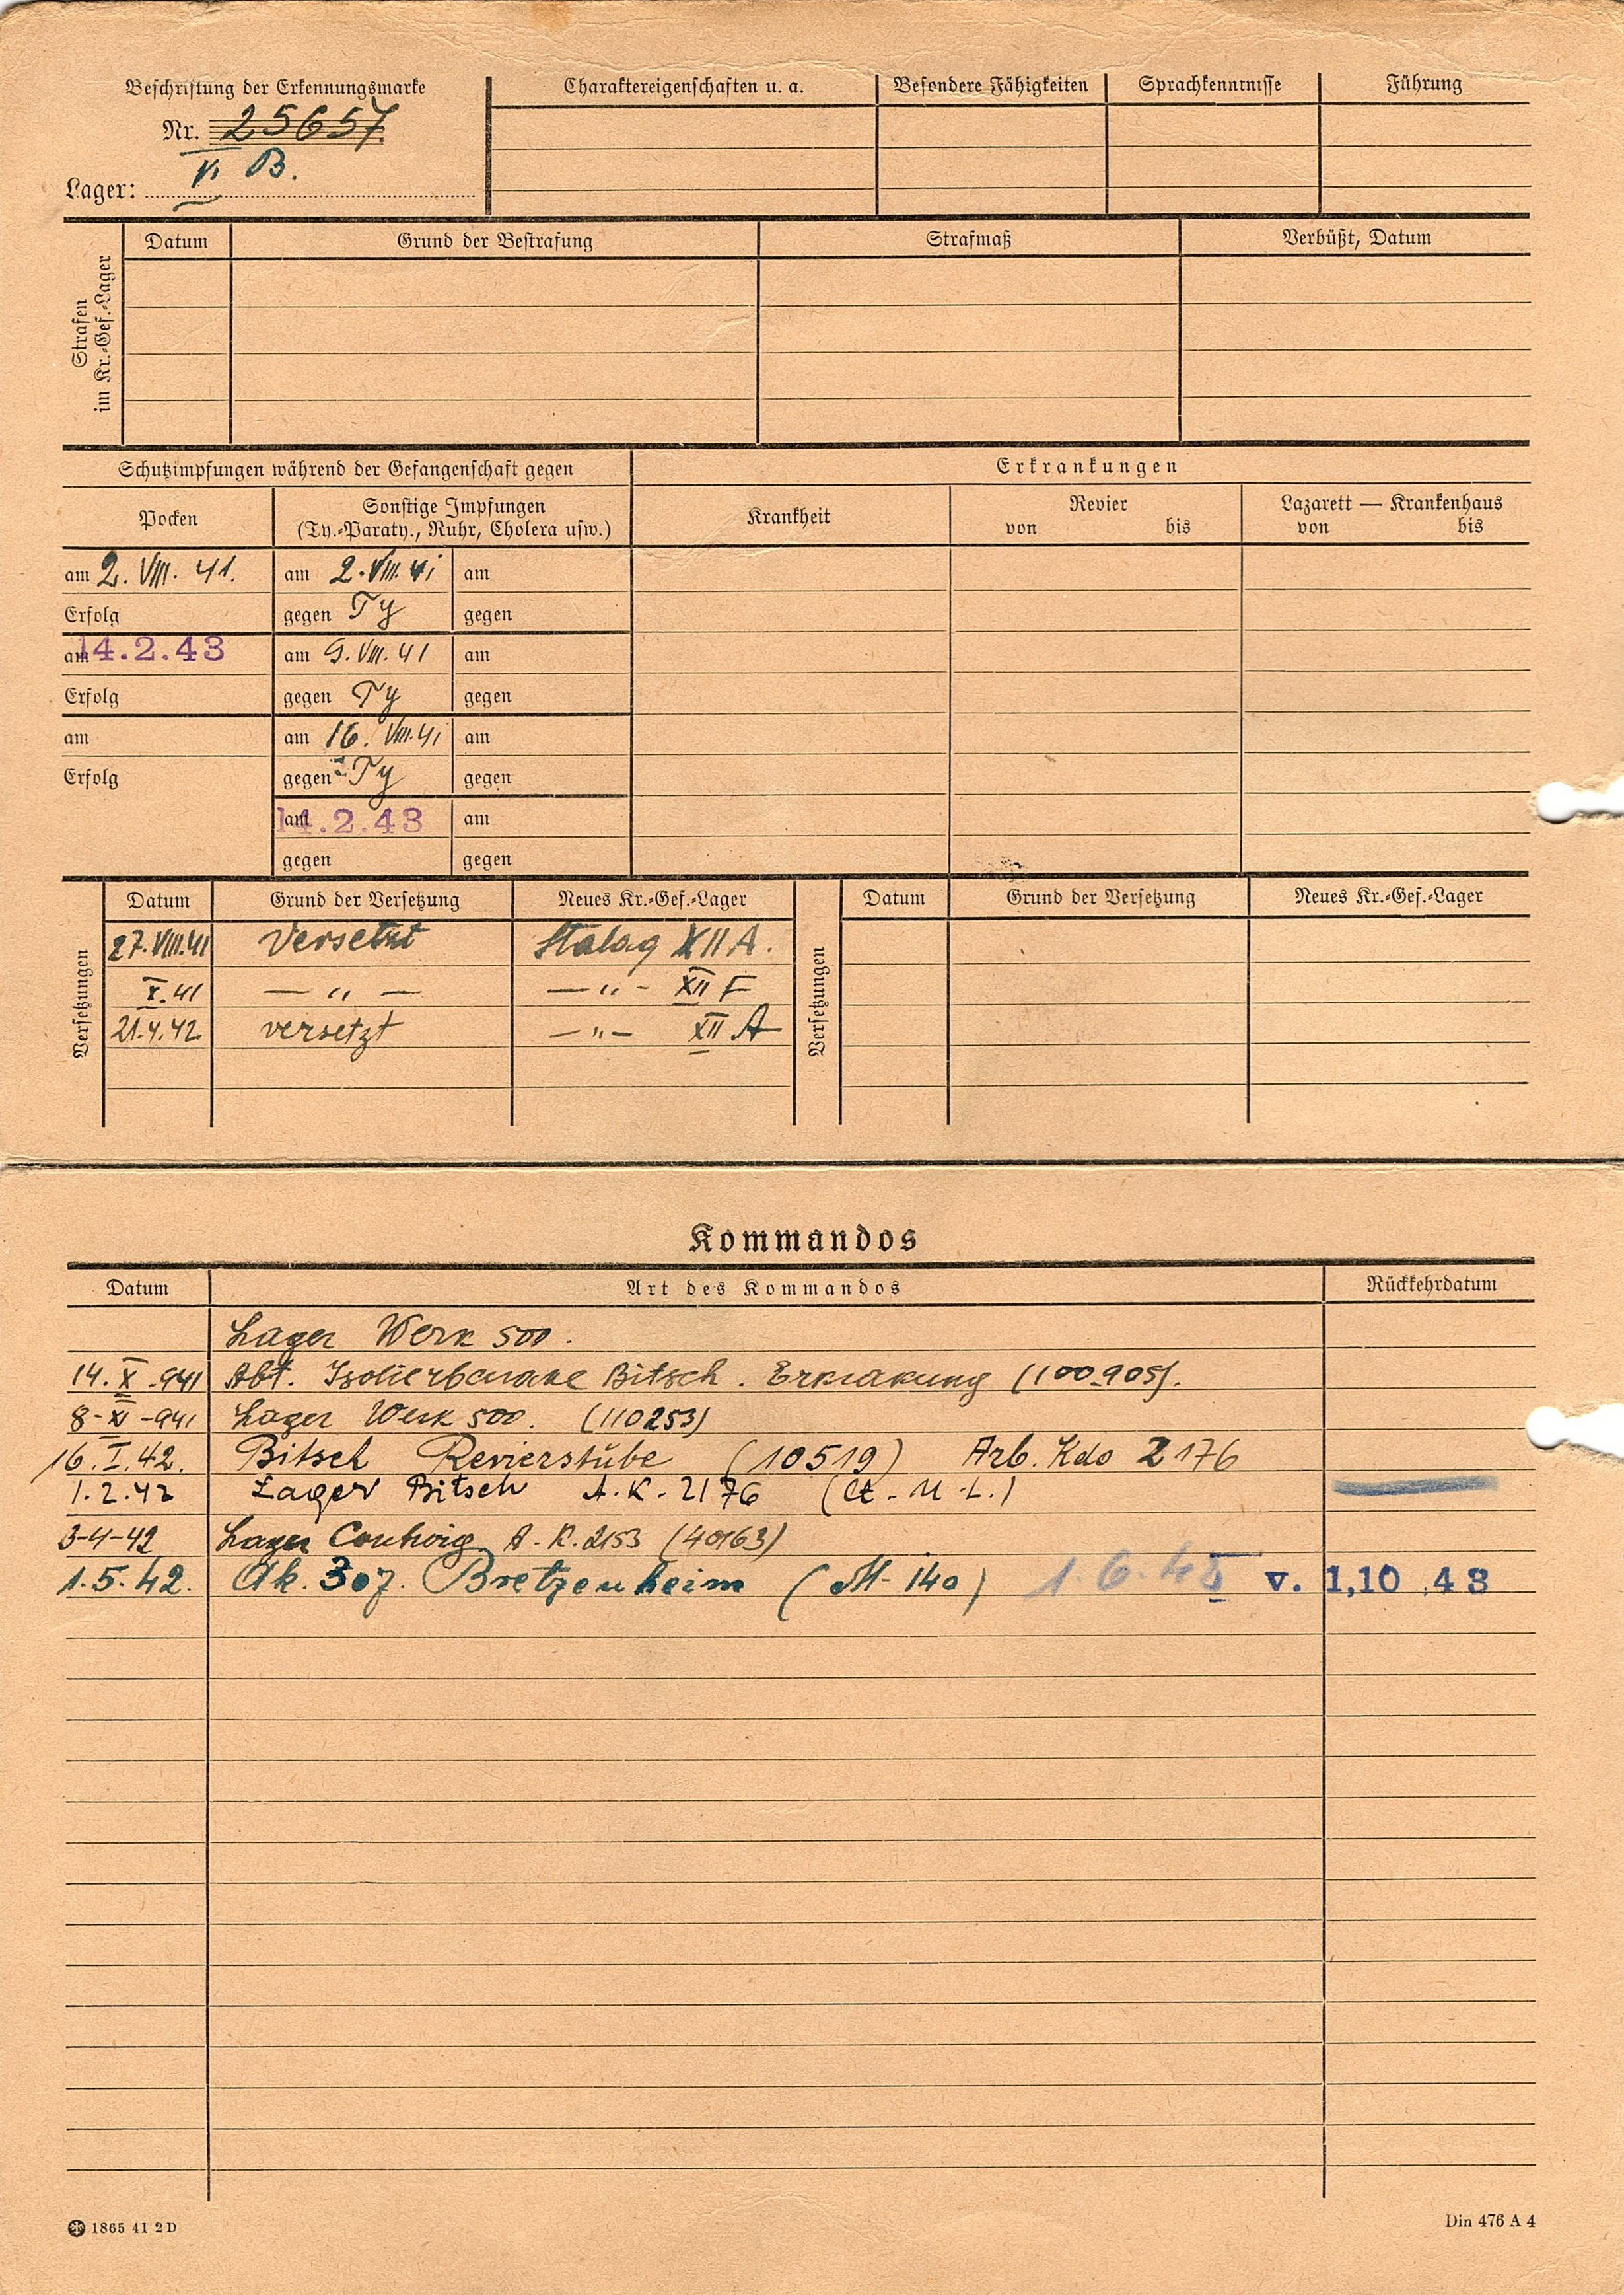 Beschriftung der Erkennungsmarke
Nr. 25657
V. B.
Lager:
Charaktereigenschaften u. a.
Besondere Fähigkeiten
Sprachkenntnisse
Führung
Strafen
im Kr.-Gef.-Lager
Datum
Grund der Bestrafung
Strafmaß
Verbüßt, Datum
Schutzimpfungen während der Gefangenschaft gegen
Erkrankungen
Pocken
Sonstige Impfungen
(Ty.-Paraty., Ruhr, Cholera usw.)
Krankheit
Revier
von bis
Lazarett — Krankenhaus
von bis
am 2. VIII. 41. am 2. VIII. 41 am
Erfolg gegen Ty gegen
am 14.2.43 am 9. VIII. 41 am
Erfolg gegen Ty gegen
am am 16. VIII. 41 am
Erfolg gegen Ty gegen
am 14.2.43 am
gegen gegen
Versetzungen
Datum Grund der Versetzung Neues Kr.-Gef.-Lager
27. VIII. 41 Versetzt Stalag XII A.
X. 41 — " — — " - XII F
21.4.42 versetzt — " — XII A
Versetzungen
Datum Grund der Versetzung Neues Kr.-Gef.-Lager
Kommandos
Datum Art des Kommandos Rückkehrdatum
Lager Werk 500.
14. X -941 Abt. Isolierbarake Bitsch. Erkrakung (100.905).
8- XI -941 Lager Werk 500. (110253)
16. I. 42. Bitsch Revierstube (10519) Arb. Kdo 2176
1.2.42 Lager Bitsch A.K. 2176
3-4-42 Lager Contwig A.K. 2153 (40163)
1.5.42. Ak. 307. Bretzenheim (M-140) v. 1,10 43
1865 41 2 D
Din 476 A 4